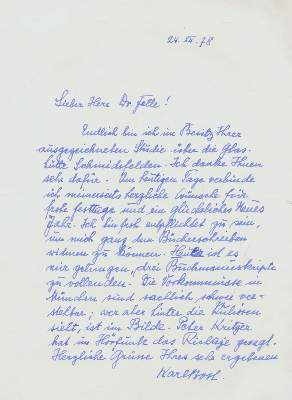 24. XII. 78
Lieber Herr Dr.
Endlich bin ich im Besitz Ihrer
ausgezeichneten Studie über die Glas-
hütte Schmidsfelden. Ich danke Ihnen
sehr dafür. Am heutigen Tage verbinde
ich meinerseits herzliche Wünsche für
frohe Festtage und ein glückliches Neues
Jahr. Ich bin froh entpflichtet zu sein,
um mich ganz dem Bücherschreiben
widmen zu können. ist es
mir gelungen, drei Buchmanuskripte
zu vollenden. Die Vorkommnisse in
München sind sachlich schwer
wer aber hinter die Kulissen
sieht, ist im Bilde. Pater
hat im Hörfunk das gesagt.
Herzliche Grüsse Ihres sehr ergebenen
Karl Bosl.